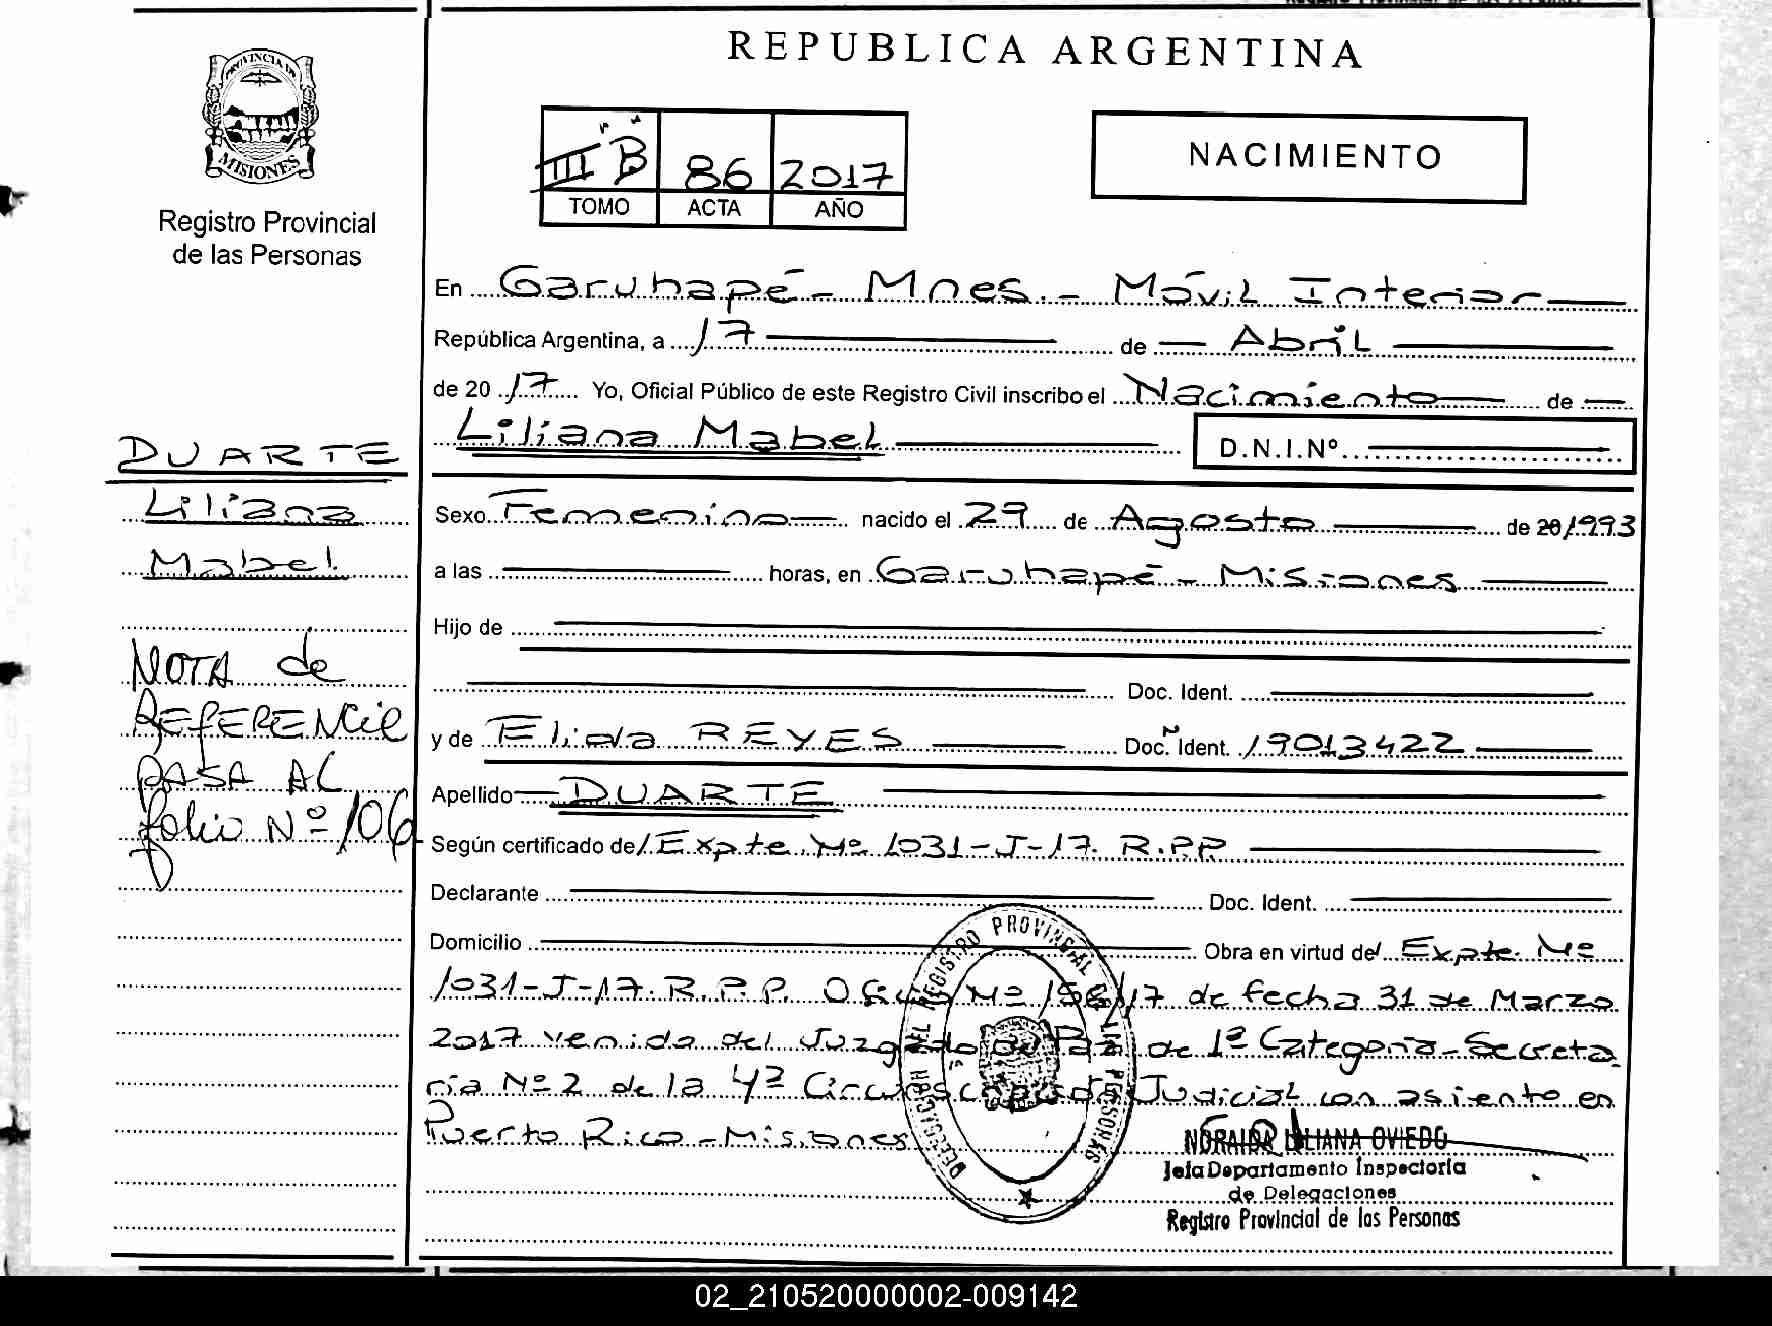 REPUBLICA ARGENTINA
PROVINCIA DE
MISIONES
Registro Provincial
de las Personas
III B 86 2017
TOMO ACTA AÑO
NACIMIENTO
En Garuhapé - Mnes. - Móvil Interior
República Argentina, a 17 de Abril
de 20 17 Yo, Oficial Público de este Registro Civil inscribo el Nacimiento de
Liliana Mabel D.N.I.Nº
DUARTE
Liliana
Mabel
Sexo Femenino nacido el 29 de Agosto de 20 1993
a las horas, en Garuhapé - Misiones
Hijo de
Doc. Ident.
y de Elida REYES Doc. Ident. 19013422
Apellido DUARTE
Según certificado del Expte. Nº 1031-J-17. R.P.P.
Declarante Doc. Ident.
Domicilio Obra en virtud del Expte. Nº
1031-J-17. R.P.P. Oficio Nº /17 de fecha 31 de Marzo
2017 venido del Juzgado de Paz de 1ª Categoría - Secreta
ría Nº 2 de la 4ª Circunscripción Judicial con asiento en
Puerto Rico - Misiones
NOTA de
REFERENCIA
PASA AL
folio Nº 106
DELEGACION DEL REGISTRO PROVINCIAL DE LAS PERSONAS
NORAIDA LILIANA OVIEDO
Jefa Departamento Inspectoria
de Delegaciones
Registro Provincial de las Personas
02_210520000002-009142